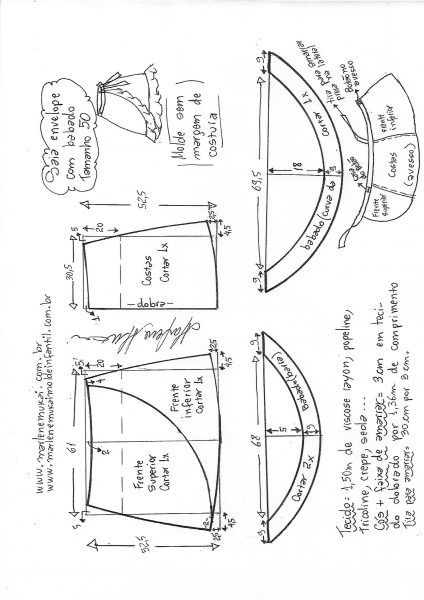 Saia envelope
com babado
Tamanho 50
Molde sem
margem de
costura
www.marlenemukai.com.br
www.marlenemukaimoldeinfantil.com.br
52,5
5
20
30,5
Costas
Cortar 1x
dobra
1
2,5
4,5
61
5
20
4
2
Frente
Superior
Cortar 1x
Frente
inferior
Cortar 1x
2
5
52,5
2,5
4,5
2,5
4,5
9
69,5
18
9
9
babado (curva da
cortar 1x
+ tira para amarrar
Babado
avesso
Frente
Superior
Costas
(avesso)
Frente
inferior
9
68
5
9
9
Babado (barra)
Cortar 2x
Tecido = 1,50m de viscose rayon, popeline,
Tricoline, crepe, seda...
Cós + faixa de amarrar = 3cm em teci-
do dobrado por 1,36m de comprimento
Tira para amarrar = 30cm por 3cm.